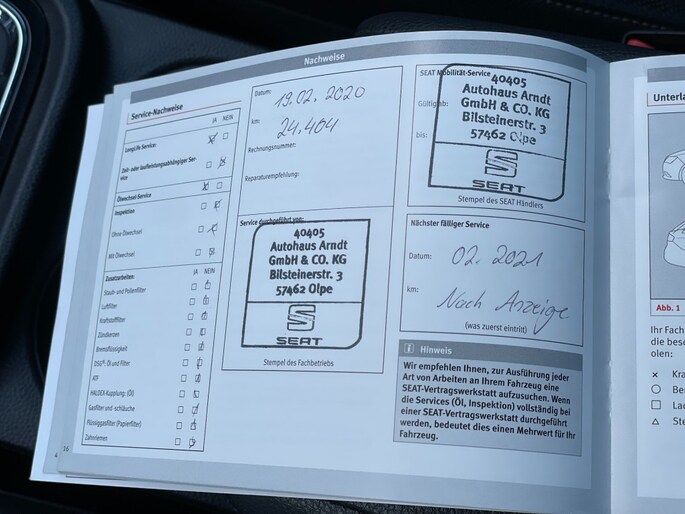 Nachweise
Service-Nachweise
JA NEIN
LongLife Service:
Zeit- oder laufleistungsabhängiger Ser-
vice
Ölwechsel-Service
Inspektion
Ohne Ölwechsel
Mit Ölwechsel
Zusatzarbeiten: JA NEIN
Staub- und Pollenfilter
Luftfilter
Kraftstofffilter
Zündkerzen
Bremsflüssigkeit
DSG®: Öl und Filter
ATF
HALDEX-Kupplung: (Öl)
Gasfilter und -schläuche
Flüssiggasfilter (Papierfilter)
Zahnriemen
Datum: 19.02.2020
km: 24.464
Rechnungsnummer:
Reparaturempfehlung:
Service durchgeführt von:
40405
Autohaus Arndt
GmbH & CO. KG
Bilsteinerstr. 3
57462 Olpe
SEAT
Stempel des Fachbetriebs
SEAT Mobilität-Service
Gültig ab:
bis:
40405
Autohaus Arndt
GmbH & CO. KG
Bilsteinerstr. 3
57462 Olpe
SEAT
Stempel des SEAT Händlers
Nächster fälliger Service
Datum: 02.2021
km: Nach Anzeige
(was zuerst eintritt)
Hinweis
Wir empfehlen Ihnen, zur Ausführung jeder
Art von Arbeiten an Ihrem Fahrzeug eine
SEAT-Vertragswerkstatt aufzusuchen. Wenn
die Services (Öl, Inspektion) vollständig bei
einer SEAT-Vertragswerkstatt durchgeführt
werden, bedeutet dies einen Mehrwert für Ihr
Fahrzeug.
Unterla
Abb. 1
Ihr Fach
die bes
olen:
Kra
Be
La
Ste